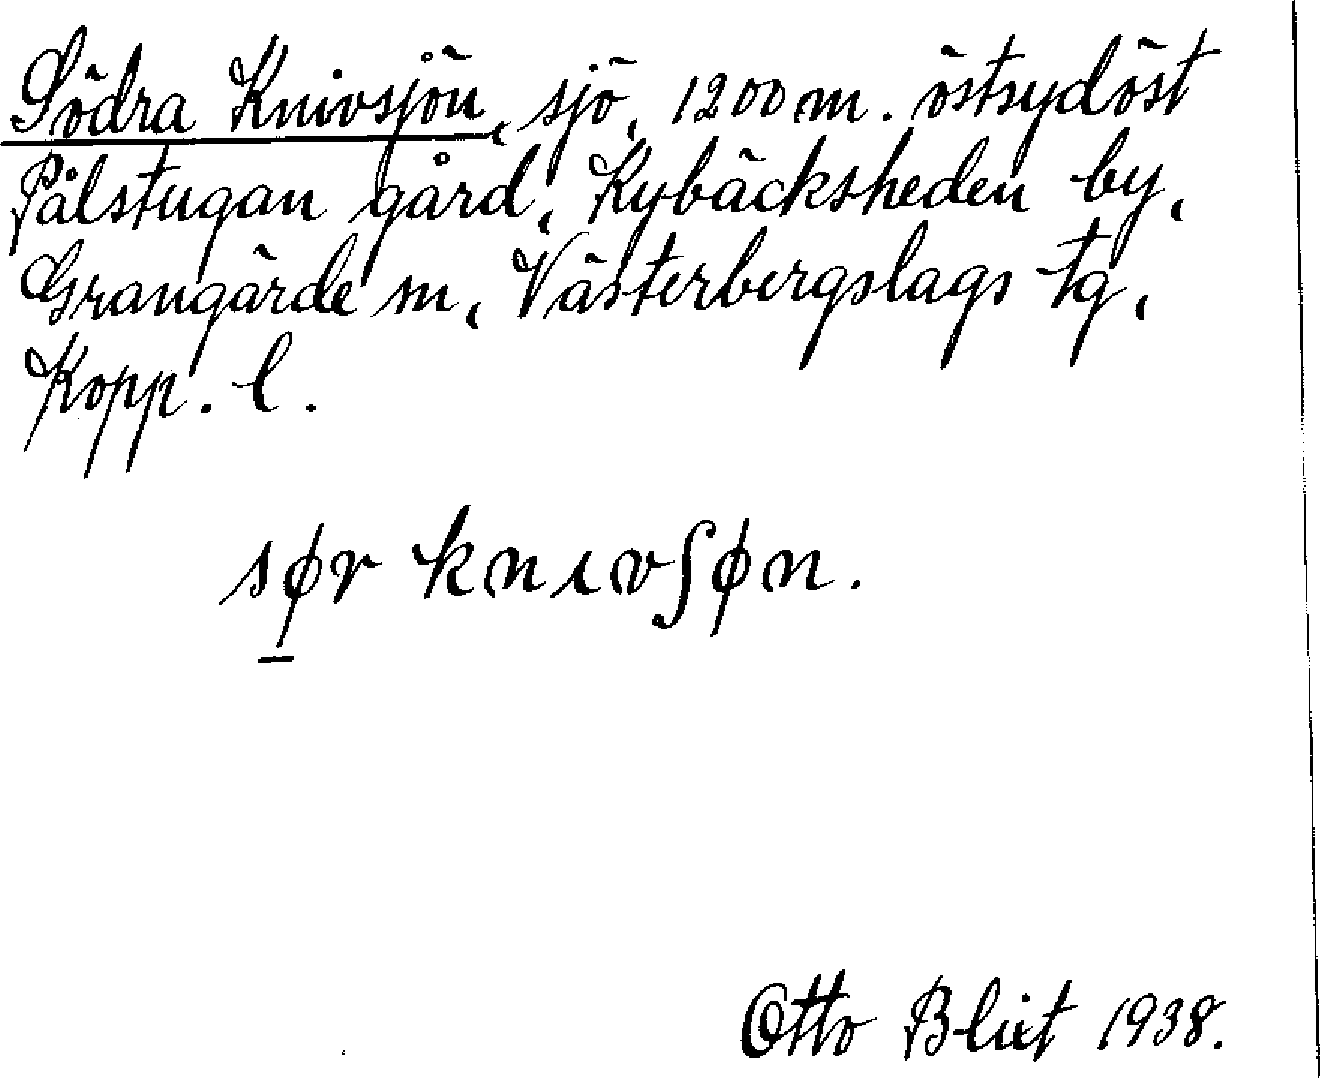 Södra Knivsjön, sjö, 1200 m. östsydöst
Pålstugan gård, Kybäcksheden by,
Grangärde sn, Västerbergslags tg,
Kopp. l.
sø̱r knɩvʃøn.
Otto Blixt 1938.